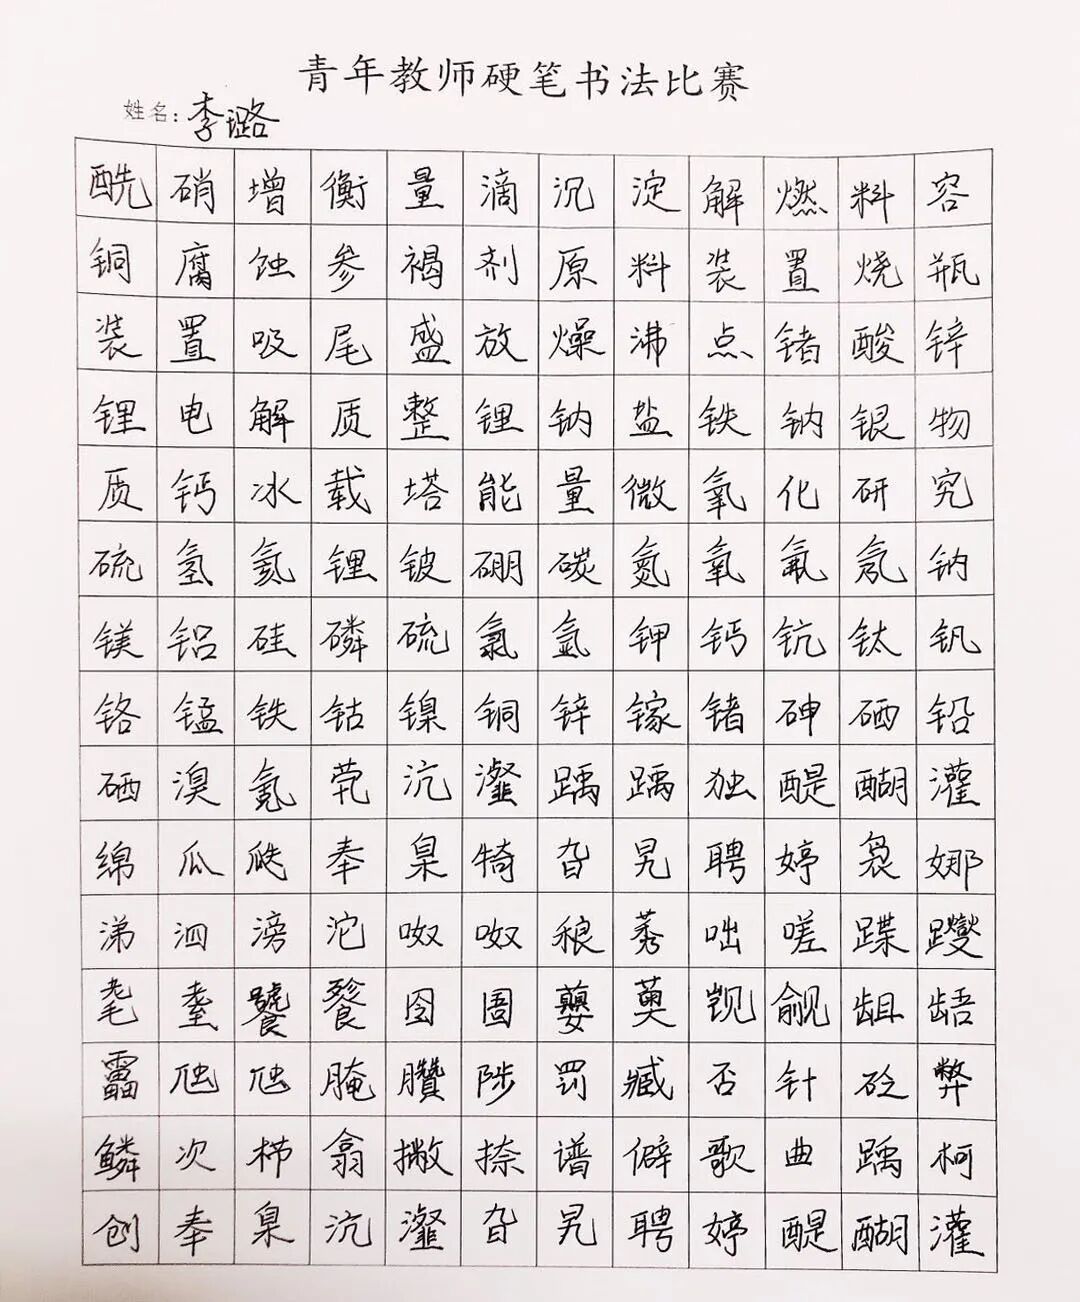 青年教师硬笔书法比赛
姓名：李璐
酰硝增衡量滴沉淀解燃料容
铜腐蚀参褐剂原料装置烧瓶
装置吸尾盛放燥沸点锗酸锌
锂电解质整锂钠盐铁钠银物
质钙冰载塔能量微氧化研究
硫氢氦锂铍硼碳氮氧氟氖钠
镁铝硅磷硫氯氩钾钙钪钛钒
铬锰铁钴镍铜锌镓锗砷硒铅
硒溴氪茕沆瀣踽踽独醍醐灌
绵瓜瓞奉臬犄旮旯聘婷袅娜
涕泗滂沱呶呶稂莠咄嗟蹀躞
耄耋饕餮囹圄蘡薁觊觎龃龉
靁虺虺腌臜陟罚臧否针砭弊
鳞次栉翕撒捺谱僻歌曲踽柯
创奉臬沆瀣旮旯聘婷醍醐灌